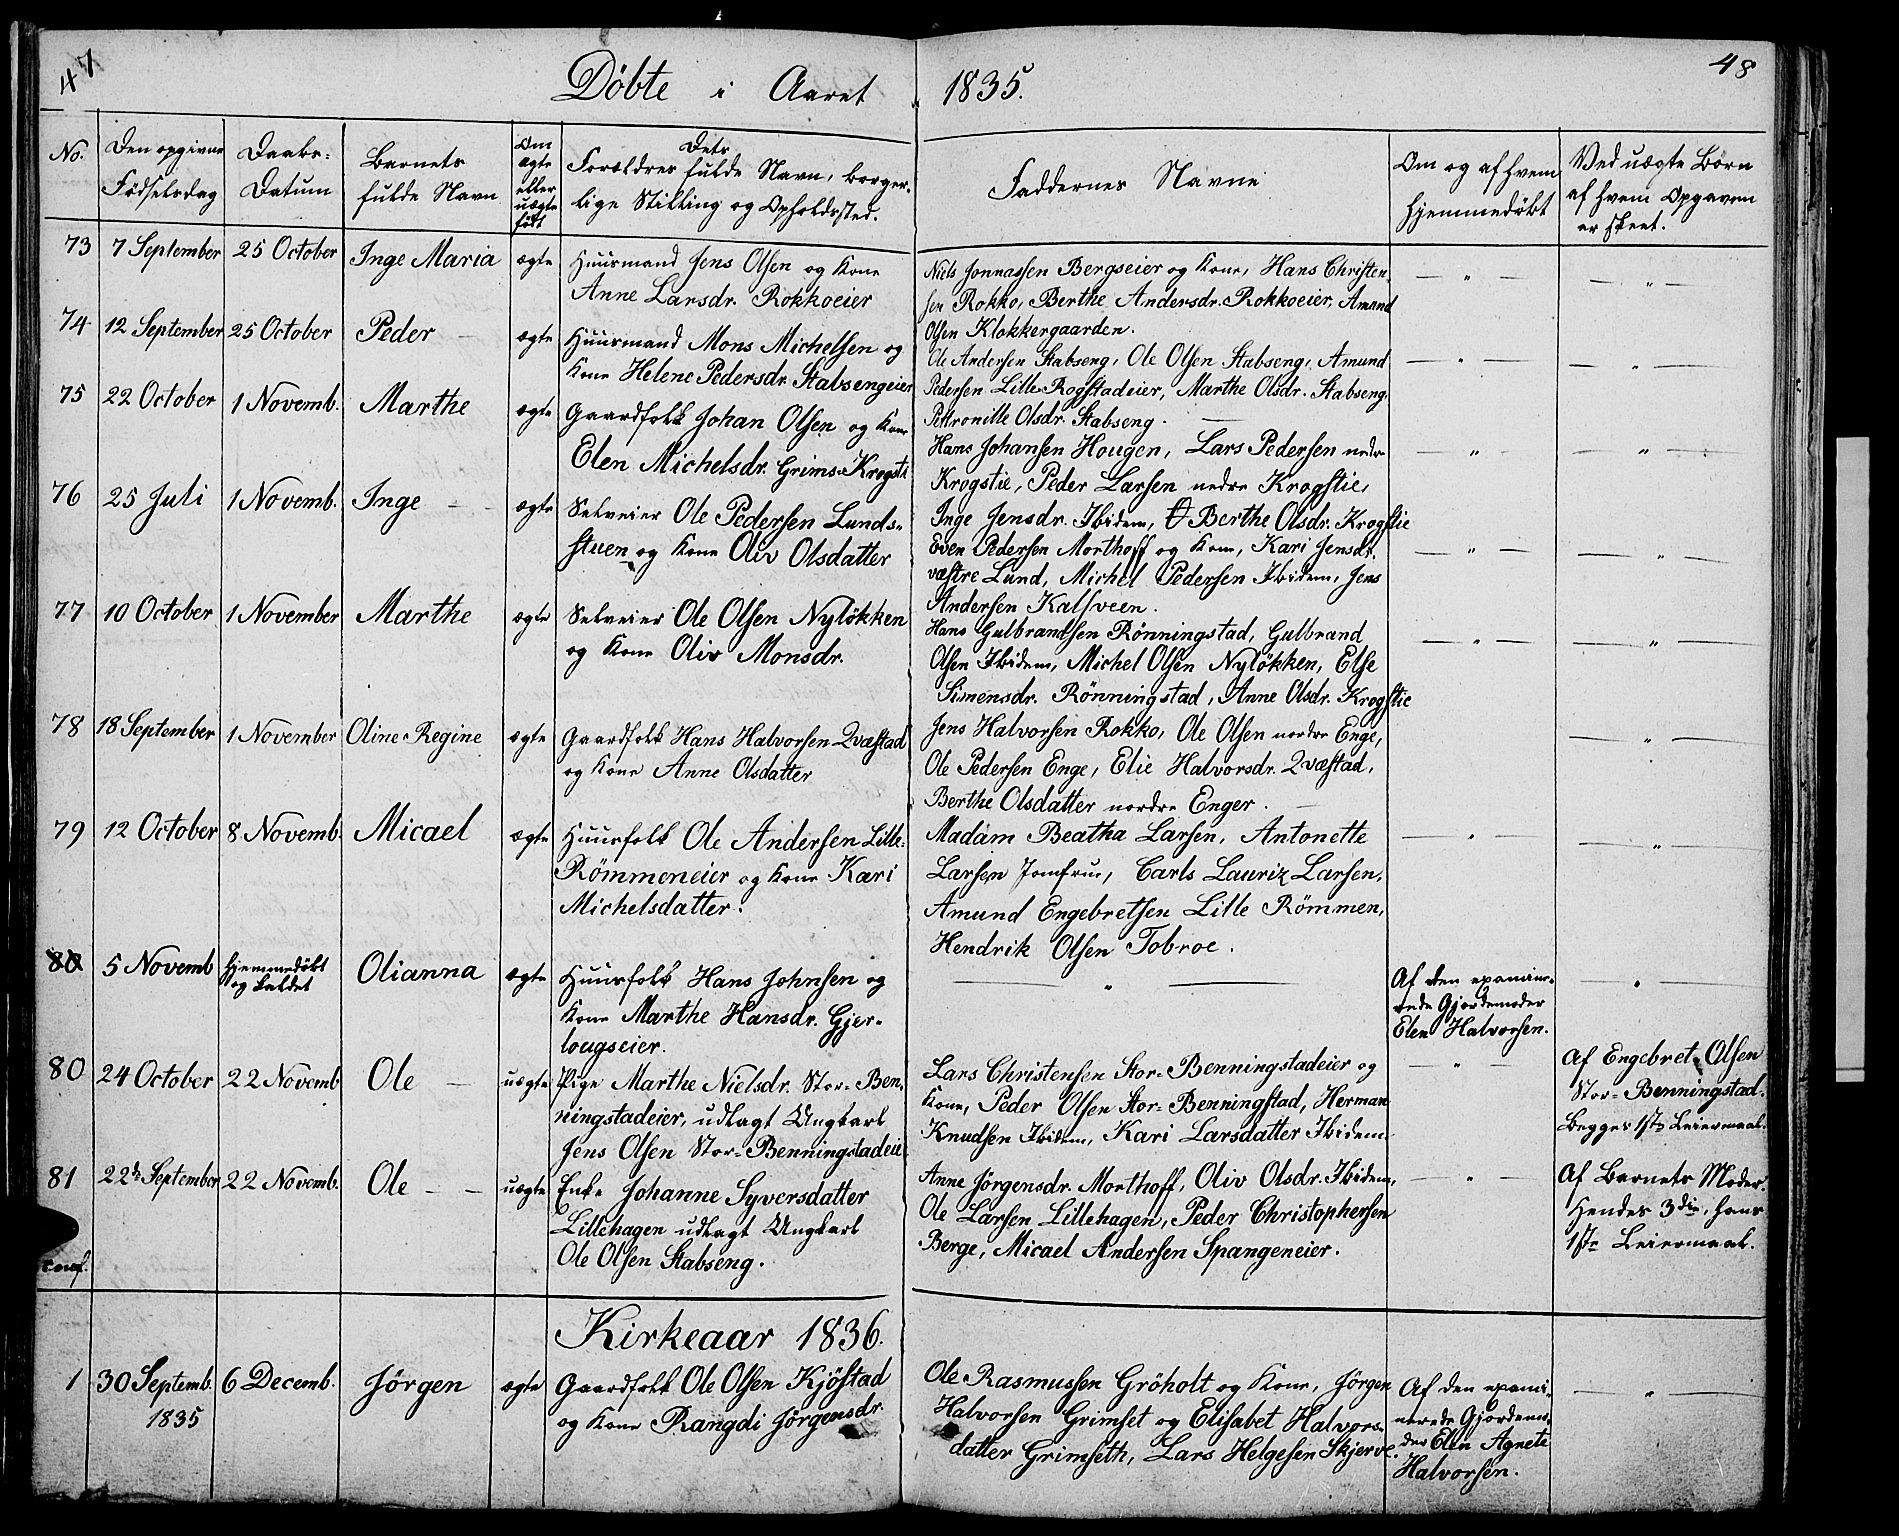 47
Döbte i Aaret 1835.
48
No.
Den opgivne Födselsdag
Daabs-Datum
Barnets fulde Navn
Om ægte eller uægte født
Dets Forældres fulde Navn, borgerlige Stilling og Opholdssted.
Faddernes Navne
Om og af hvem hjemmedøbt
Ved uægte Børn af hvem Opgaven er skeet.
73 7 September 25 October Inge Maria ægte Huusmand Jens Olsen og Kone
Anne Larsdr. Rokkoeier
Niels Jonnassen Bergseier og Kone, Hans Christen-
sen Rokko, Berthe Andersdr. Rokkoeier, Amund
Olsen Klokkergaarden.
— " — — " —
74 12 September 25 October Peder — ægte Huusmand Mons Michelsen og
Kone Helene Pedersdr. Stabsengeier
Ole Andersen Stabseng, Ole Olsen Stabseng, Amund
Pedersen Lille Rogstadeier, Marthe Olsdr. Stabseng,
Pettronille Olsdr. Stabseng. —
— " — — " —
75 22 October 1 Novemb. Marthe ægte Gaardfolk Johan Olsen og Kone
Elen Michelsdr. Grims-Krogsti
Hans Johansen Hougen, Lars Pedersen nedre
Krogstie, Peder Larsen nedre Krogstie,
Inge Jensdr. Ibidem, Berthe Olsdr. Krogstie
— " — — " —
76 25 Juli 1 Novemb. Inge — — ægte Selveier Ole Pedersen Lunds-
stuen og Kone Oliv Olsdatter
Even Pedersen Morthoff og Kone, Kari Jensdr.
væstre Lund, Michel Pedersen Ibidem, Jens
Andersen Kalsveen.
— " — — " —
77 10 October 1 November Marthe ægte Selveier Ole Olsen Nyløkken
og Kone Oliv Monsdr.
Hans Gulbrandsen Rönningstad, Gulbrand
Olsen Ibidem, Michel Olsen Nyløkken, Else
Simensdr. Rönningstad, Anne Olsdr. Krogstie
— " — — " —
78 18 September 1 November Oline Regine ægte Gaardfolk Hans Halvorsen Qvæstad
og Kone Anne Olsdatter
Jens Halvorsen Rokko, Ole Olsen nordre Enge,
Ole Pedersen Enge, Elie Halvorsdr. Qvæstad,
Berthe Olsdatter nordre Enger. —
— " —
79 12 October 8 Novemb. Micael ægte Huusfolk Ole Andersen Lille-
Römmeneier og Kone Kari
Michelsdatter.
Madam Beatha Larsen, Antonette
Larsen Jomfrue, Carls Lauriz Larsen,
Amund Engebretsen Lille Römmen,
Hendrik Olsen Tobroe.
— " — — " —
80 5 Novemb. Hjemmedøbt Olianna ægte Huusfolk Hans Johnsen og
Kone Marthe Hansdr. Gjer-
lougseier.
— " —
Af den examine-
rede Gjordemoder
Elen Halvorsen.
— " —
80 24 October 22 Novemb Ole — uægte Pige Marthe Nielsdr. Stor-Ben-
ningstadeier, udlagt Ungkarl
Jens Olsen Stor-Benningstadeie
Lars Christensen Stor-Benningstadeier og
Kone, Peder Olsen Stor-Benningstad, Herman
Knudsen Ibidem, Kari Larsdatter Ibidem
— " —
Af Engebret Olsen
Stor-Benningstad.
Begges 1ste Leiermaal.
81 22de September 22 Novemb. Ole — — uægte Enke Johanne Syversdatter
Lillehagen udlagt Ungkarl
Ole Olsen Stabseng.
Anne Jörgensdr. Morthoff, Oliv Olsdr. Ibidem,
Ole Larsen Lillehagen, Peder Christophersen
Berge, Micael Andersen Spangeneier.
— " —
Af Barnets Moder.
Hendes 3die, hans
1ste Leiermaal.
Conf.
Kirkeaar 1836.
1 30 Septemb. 1835 6 Decemb. Jörgen ægte Gaardfolk Ole Olsen Kjöstad
og Kone Rangdi Jörgensdr.
Ole Rasmussen Gröholt og Kone, Jörgen
Halvorsen Grimset og Elisabet Halvors-
datter Grimseth, Lars Helgesen Skjerve.
Af den exami-
nerede Gjordemo-
der Elen Agnete
Halvorsen.
— " —